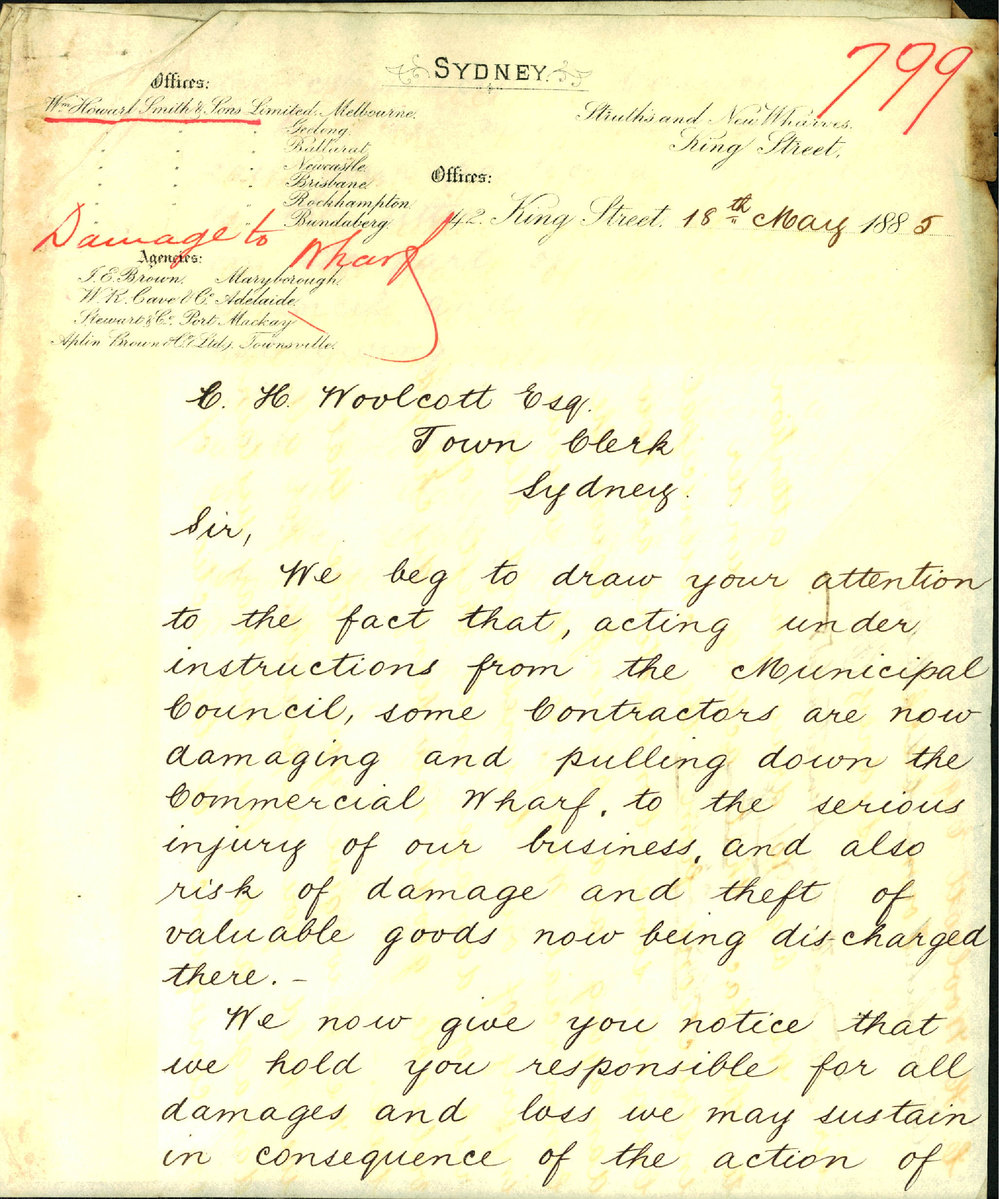 SYDNEY.
799
Offices:
Wm Howard Smith & Sons Limited. Melbourne.
" " " Geelong.
" " " Ballarat.
" " " Newcastle.
" " " Brisbane.
" " " Rockhampton.
" " " Bundaberg.
Struth's and New Wharves.
King Street.
Offices:
42. King Street. 18th May 1885
Damage to Wharf
Agencies:
J. E. Brown. Maryborough.
W. R. Cave & Co. Adelaide.
Stewart & Co. Port Mackay
Aplin Brown & Co. (Ltd). Townsville.
C. H. Woolcott Esq.
Town Clerk
Sydney.
Sir,
We beg to draw your attention
to the fact that, acting under
instructions from the Municipal
Council, some Contractors are now
damaging and pulling down the
Commercial Wharf, to the serious
injury of our business, and also
risk of damage and theft of
valuable goods now being dis-charged
there. –
We now give you notice that
we hold you responsible for all
damages and loss we may sustain
in consequence of the action of